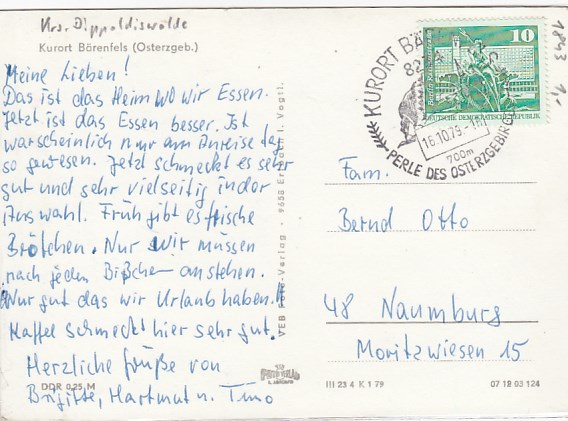 Krs. Dippoldiswalde
Kurort Bärenfels (Osterzgeb.)
Meine Lieben!
Das ist das Heim wo wir Essen.
Jetzt ist das Essen besser. Ist
warscheinlich nur am Anreise tag
so gewesen. Jetzt schmeckt es sehr
gut und sehr vielseitig in der
Auswahl. Früh gibt es frische
Brötchen. Nur wir müssen
nach jeden Bißchen anstehen.
Nur gut das wir Urlaub haben!!
Kaffee schmeckt hier sehr gut.
Herzliche Grüße von
Brigitte, Hartmut u. Timo
DDR 0,25 M
VEB Foto-Verlag · 9653 Erlbach i. Vogtl.
KURORT BÄRENFELS
16.10.79
700m
PERLE DES OSTERZGEBIRGES
10
DEUTSCHE DEMOKRATISCHE REPUBLIK
1843
1,-
Fam.
Bernd Otto
48 Naumburg
Moritzwiesen 15
III 23 4 K 1 79
07 12 03 124